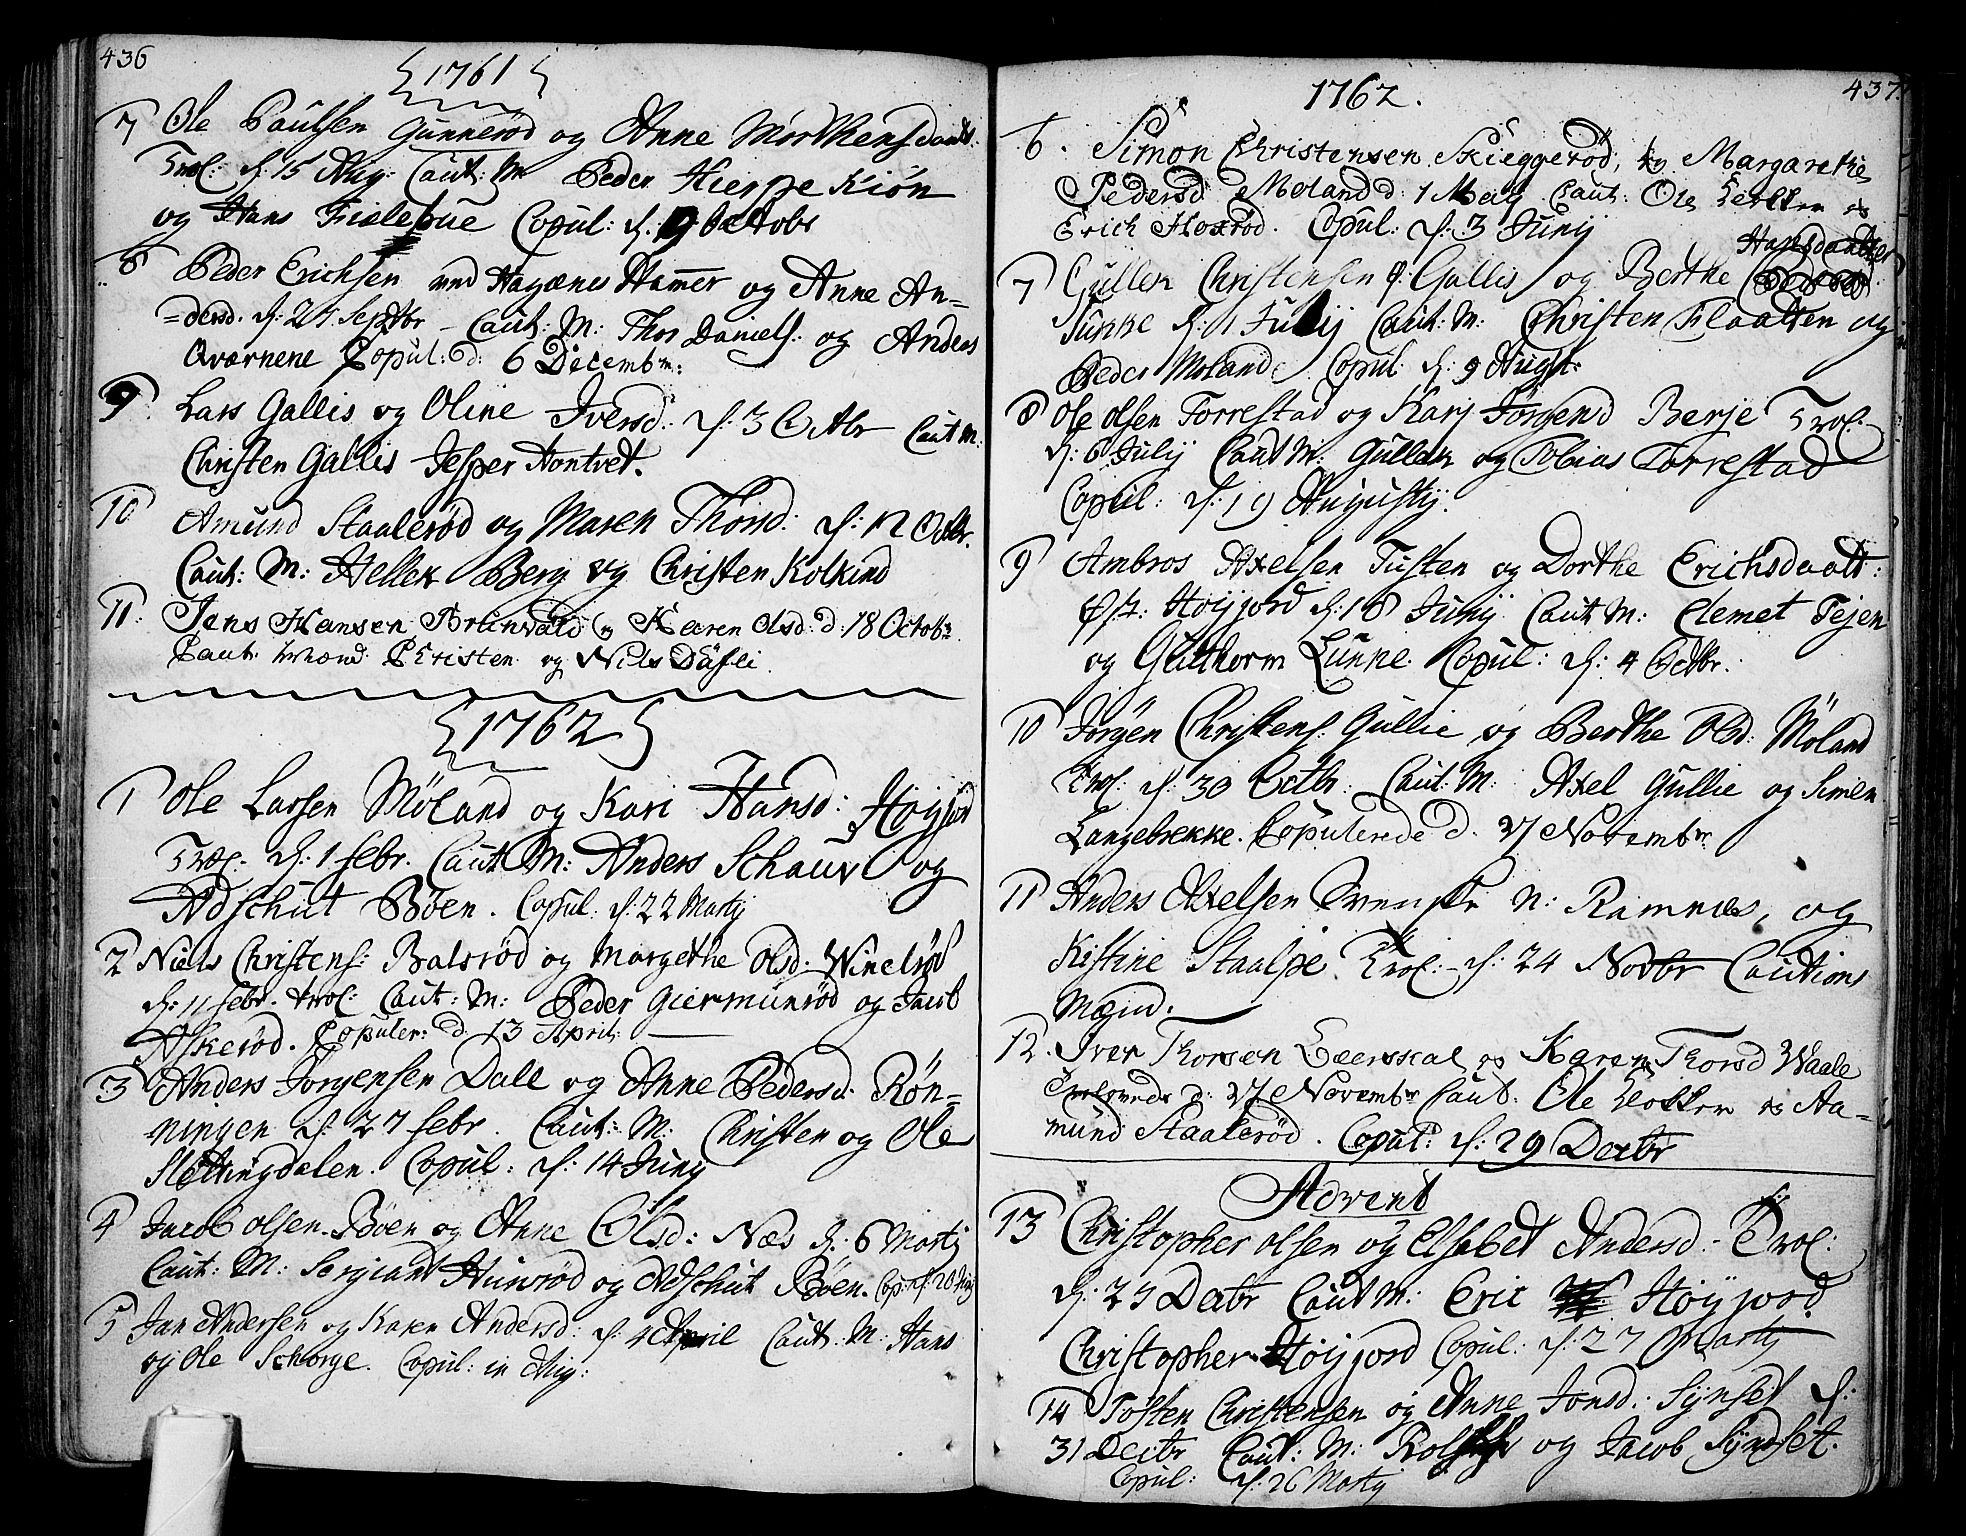 436
1761
7 Ole Paulsen Gunnerød og Anne Morthensdaat:
Trol: d: 15 Aug: Caut: M: Peder Hierpekiøn
og Hans Copul: d: 19 Octobr
8 Peder Erichsen ved Hagænes Hamer og Anne An=
=dersd. d: 25 Septbr Caut: M: Thor Daniels: og Anders
Qvarnene Copul: d: 6 Decembr:
9 Lars Gallis og Oline Iversd: d: 3 Octbr Caut M:
Christen Gallis Jesper Hontvet.
10 Amund Staalerød og Maren Thorsd: d: 12 Octbr.
Caut: M: Hellek Berg og Christen Kolkind
11. Jens Hansen Brunvald og Karen Olsd: d: 18 Octobr
Caut: Mænd Christen og Nils Dufli
1762
1 Ole Larsen Møland og Kari Hansd: Høyjord
Trol: d: 1 Febr. Caut M: Anders Schaur og
Adschut Bøen. Copul: d: 22 Martij
2 Niels Christens: Balsrød og Margethe Olsd: Winelrød
d: 11 Febr. trol: Caut: M: Peder Giermunrød og Jacob
Askerød. Copuler: d. 13 April:
3 Anders Jørgensen Dall og Anne Pedersd. Røn=
ningen d: 27 Febr. Caut: M: Christen og Ole
Slettingdalen. Copul: d: 14 Junij
4 Jacob Olsen Bøen og Anne Olsd: Næs d: 6 Martij
Caut: M: Sergiant Hunrød og Adschut Bøen. Cop: d: 20 Junij
5 Jan Andersen og Karen Andersd: d: 4 April Caut. M: Hans
og Ole Schorge. Copul: in Aug:
437.
1762.
6. Simon Christensen Skieggerød, og Margarethe
Pedersd Moland d: 1 Maij Caut: Ole Klokker og
Erich Floxrød. Copul: d: 3 Junij
Hansdaatter
7 Gullek Christensen Gallis og Berthe
Tunke d: 1 Julij Caut: M: Christen Flaatten og
Peder Moland Copul d: 9 Augst:
8 Ole Olsen Torrestad og Karj Jørgensd Berje Trol:
d: 6 Julij Caut M: Gullek og Tobias Torrestad
Copul: d: 19 Augustij.
9 Ambros Axelsen Tuften og Dorthe Erichsdaatt:
Høijord d: 18 Junij Caut M: Clemet Tejen
og Gutthorm Lunke. Copul: d: 4 Octbr.
10 Jørgen Christens: Gullie og Berthe Olsd: Møland
Trol: d: 30 Octbr. Caut: M: Axel Gullie og Simen
Langebrekke. Copulerede d. 27 Novembr
11 Anders Axelsen Svenske n: Ramnæs, og
Kistine Staalpe. Trol: d: 24 Novbr Cautions
Mænd.
12. Iver Thorsen Leerskal og Karen Thorsd Waale
Trolovede d: 27 Novembr Caut. Ole Klokker og Aa=
mund Staalerød. Copul: d: 29 Decbr
Advent
13 Christopher Olsen og Elsebet Andersd: Trol:
d: 25 Decbr Caut M: Eric Høyjord
Christopher Høyjord Copul: d: 27 Martij
14 Tosten Christensen og Anne Jonsd: Synset d:
31 Decbr Caut: M: og Jacob Syndset.
Copul: d: 26 Martij